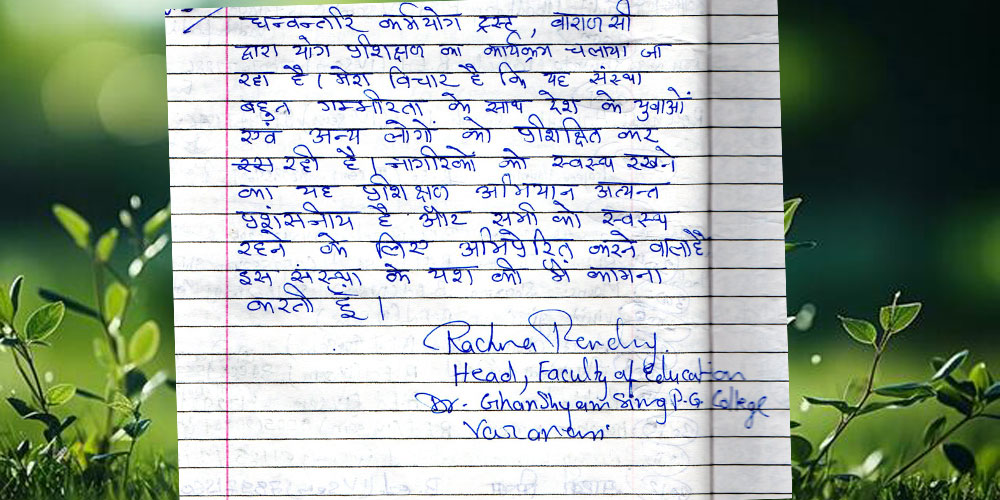 धन्वन्तरि कर्मयोग ट्रस्ट, वाराणसी
द्वारा योग प्रशिक्षण का कार्यक्रम चलाया जा
रहा है। मेरा विचार है कि यह संस्था
बहुत गम्भीरता के साथ देश के युवाओं
एवं अन्य लोगों को प्रशिक्षित कर
रही है। नागरिकों को स्वस्थ रखने
का यह प्रशिक्षण अभियान अत्यन्त
प्रशंसनीय है और सभी को स्वस्थ
रहने के लिए अभिप्रेरित करने वाला है
इस संस्था के यश की मैं कामना
करती हूँ।
Rachna
Head, Faculty of Education
Dr. Ghanshyam Sing P.G College
Varanasi